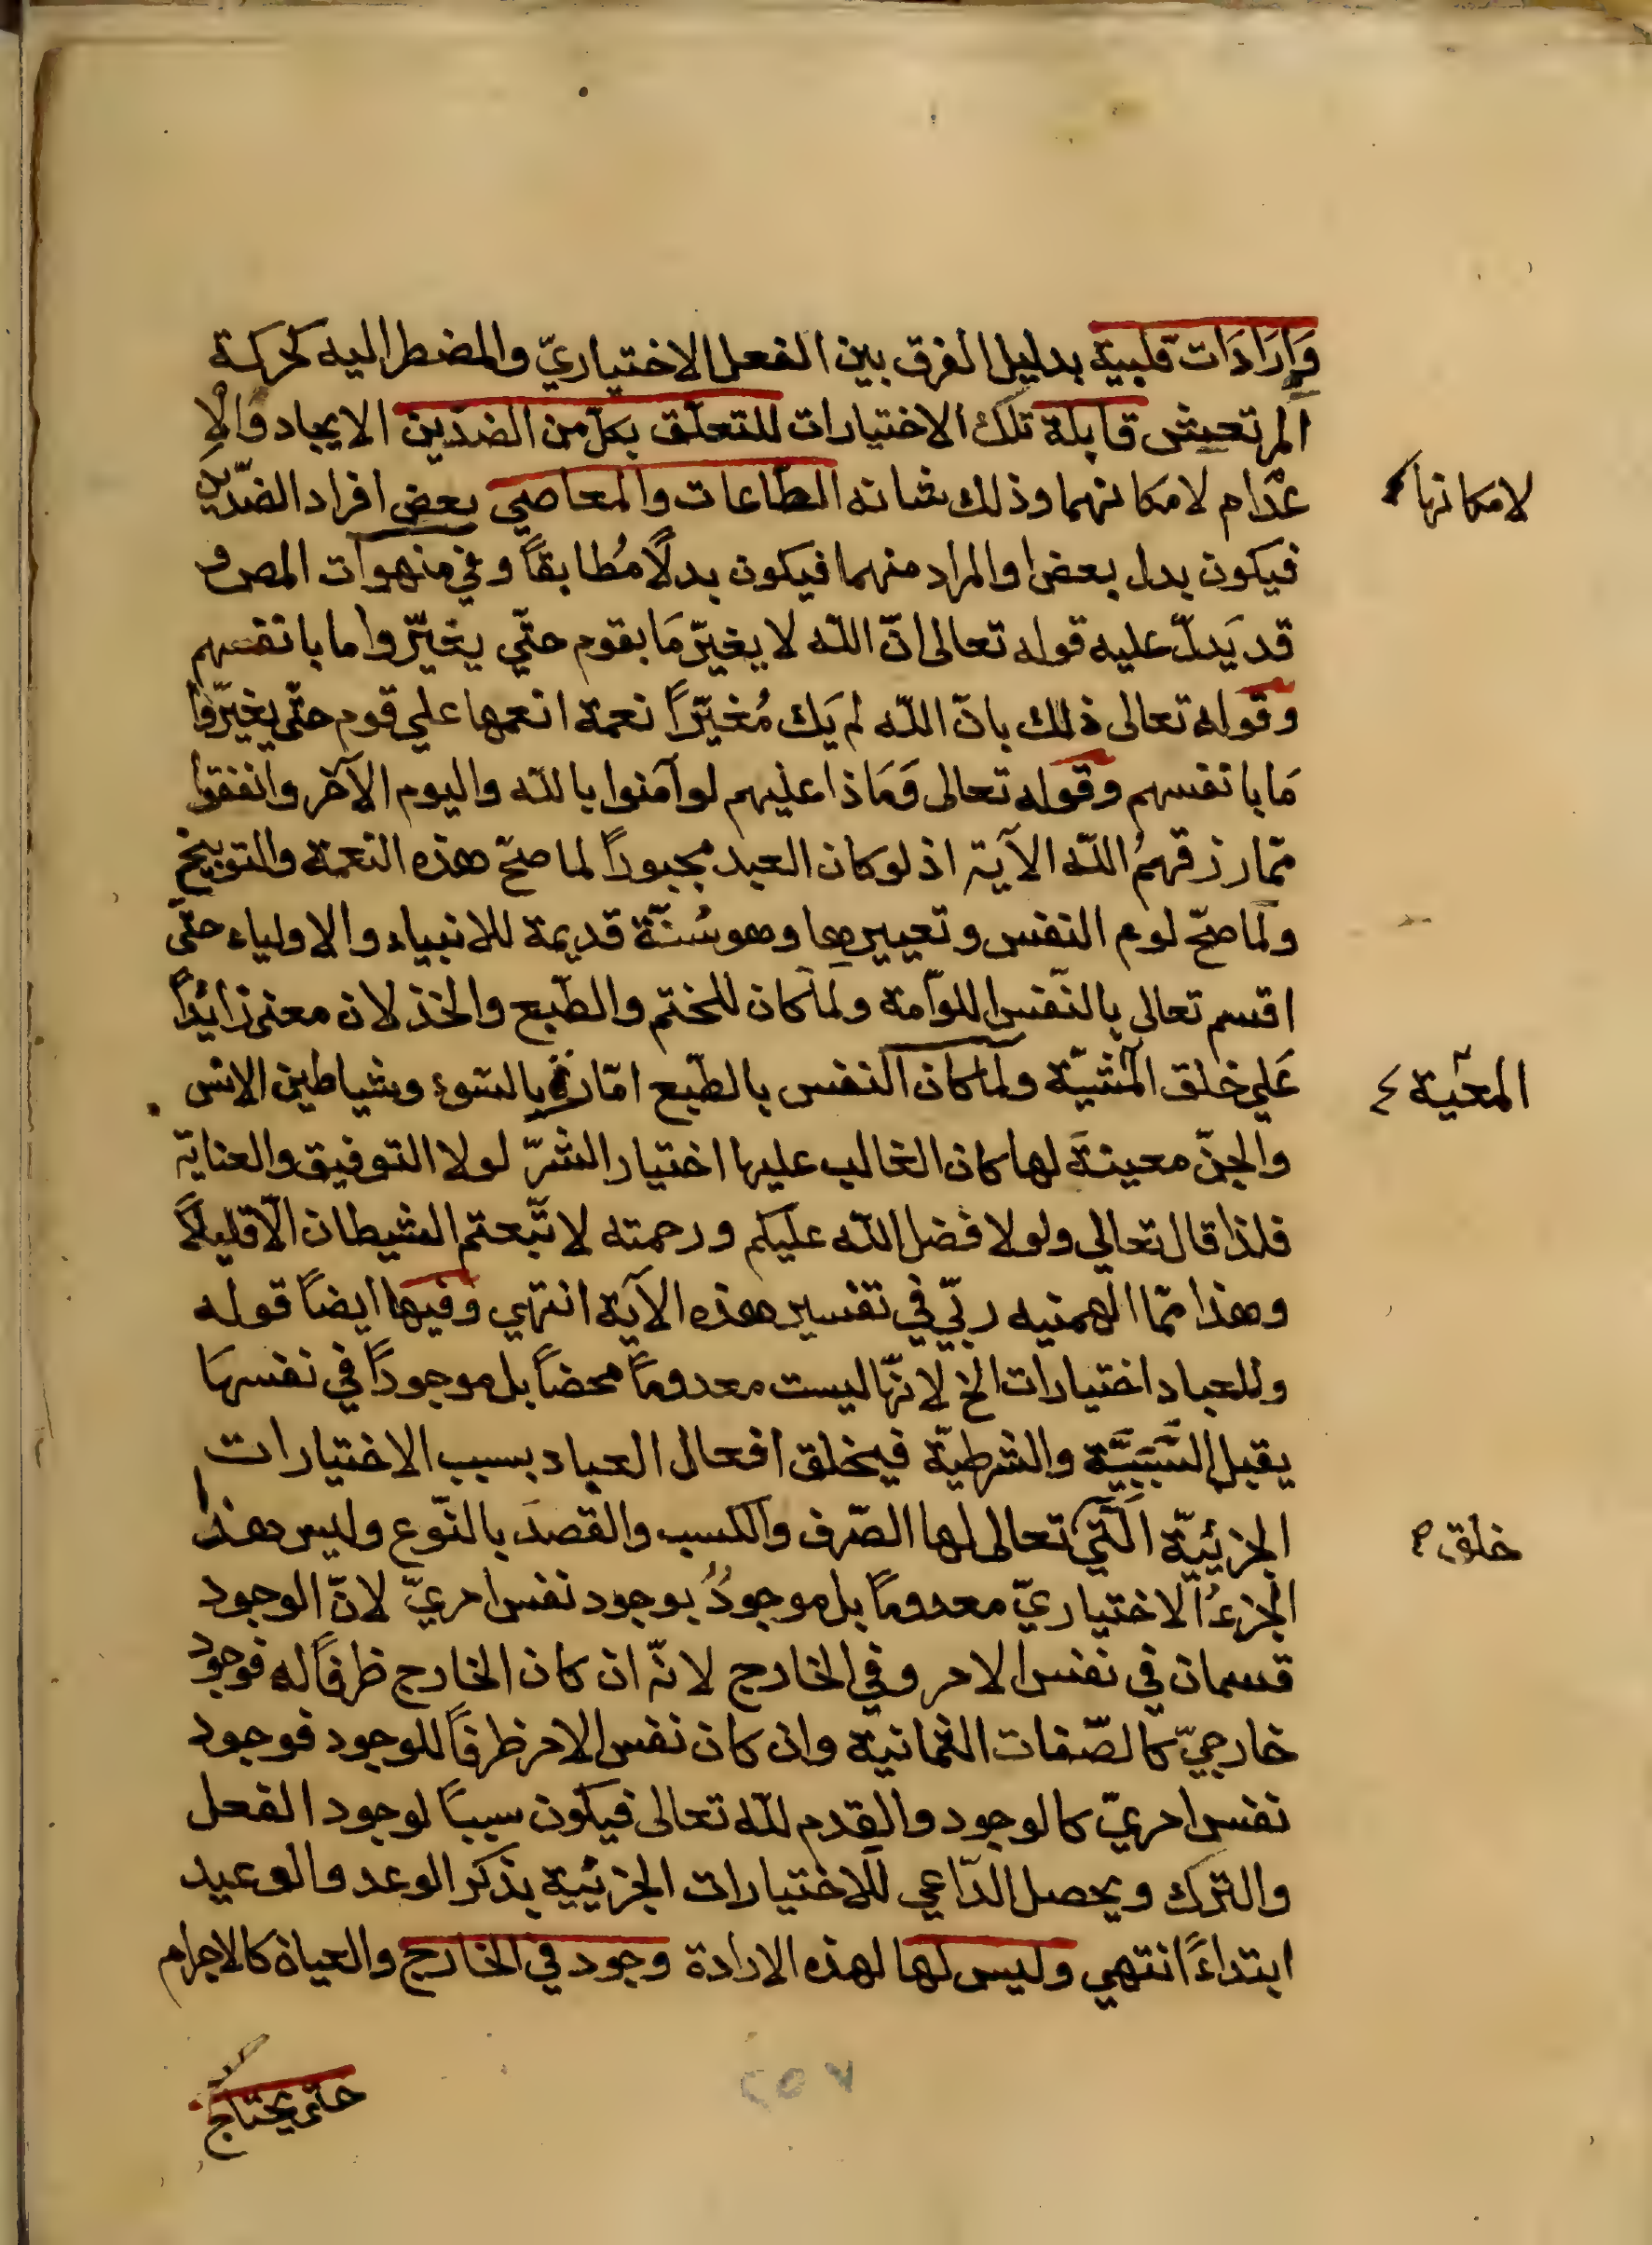 وَإِرَادَات قلبية بدليل الفرق بين الفعل الاختياريّ والمضطر اليه كحركة
المرتعيش قابلة تلك الاختيارات للتعلّق بكلّ من الضدّين الايجاد والاِ
عدام لامكانهما وذلك شانه الطاعات والمعاصي بعض افراد الضدّين
لامكانها
فيكون بدل بعض او المراد منهما فيكون بدلاً مُطابقاً وفي منهوات المص و
قد يَدلّ عليه قوله تعالى انّ اللّه لا يغيّر مَا بقوم حتّي يغيّروا ما بانفسهم
وقوله تعالى ذلك بانّ اللّه لم يَك مُغيّراً نعمة انعمها علي قوم حتّى يغيّروا
مَا بانفسهم وقوله تعالى وَمَاذا عليهم لو آمنوا باللّه واليوم الآخر وانفقوا
ممّا رزقهمُ اللّه الآية اذ لو كان العبد مجبوراً لما صحّ هذه النعمة والتوبيخ
ولما صحّ لوم النفس وتعييرها وهو سُنّة قديمة للانبياء والاولياء حتّى
اقسم تعالى بالنّفس اللوّامة ولما كان للختم والطّبع والخذلان معنى زائداً
عَلي خلق المشيّة ولما كان النفس بالطّبع امّارة بالسّوء وشياطين الانس
المعيّة ٤
والجنّ معينة لها كان الغالب عليها اختيار الشّرّ لولا التوفيق والعناية
فلذا قال تعالي ولولا فضل اللّه عليكم ورحمته لاتّبعتم الشيطان الّا قليلاً
وهذا ممّا الهمنيه ربّي في تفسير هذه الآية انتهي وفيها ايضاً قوله
وللعباد اختيارات الخ لانّها ليست معدوماً محضاً بل موجوداً في نفسهَا
يقبل السَّبَبيَّة والشرطيّة فيخلق افعال العباد بسبب الاختيارات
الجزئيّة الَّتي تعالى لها الصّرف والكسب والقصدَ بالنّوع وليس هذا
خلق ٥
الجزءُ الاختياريّ معدوماً بل موجودُ بوجود نفس امريّ لانّ الوجود
قسمان في نفس الامر وفي الخارج لانّه ان كان الخارج ظرفاً له فوجود
خارجيّ كالصّفات الثمانية وان كان نفس الامر ظرفاً للوجود فوجود
نفس امريّ كالوجود والقدم للّه تعالى فيكون سببًا لوجود الفعل
والترك ويحصل الدّاعي للاختيارات الجزئيّة بذكر الوعد والوعيد
ابتداءً انتهي وليس لها لهذه الارادة وجود في الخارج والعيان كالاجرام
حتى يحتاج
٢٥٧